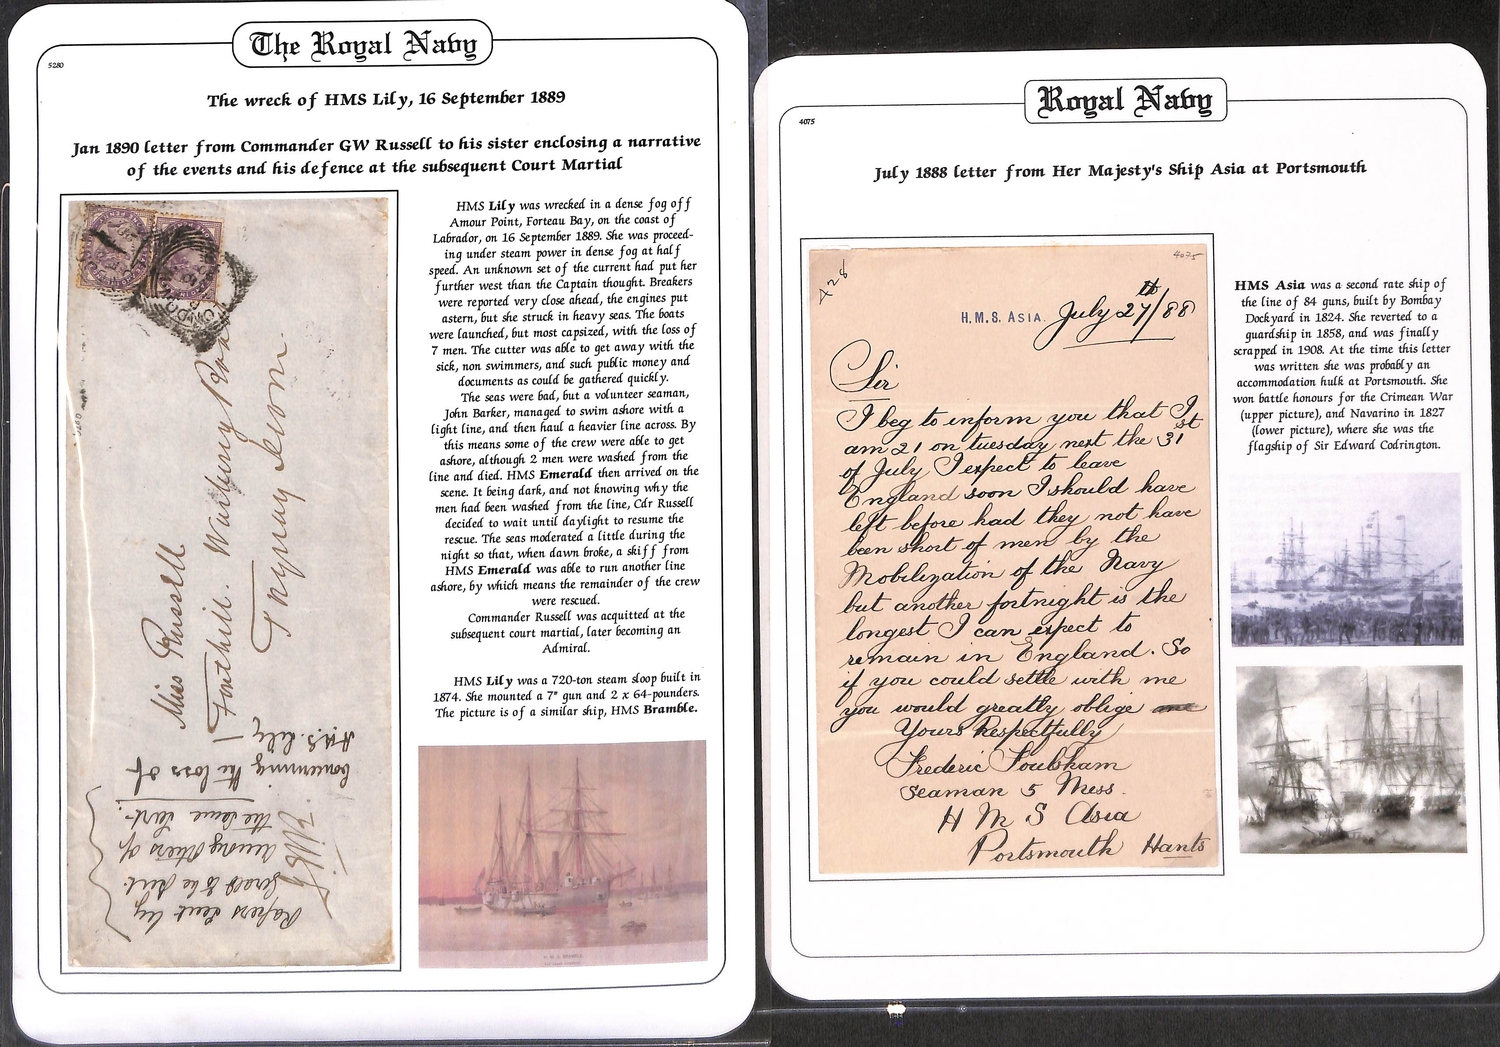 The Royal Navy
5280
The wreck of HMS Lily, 16 September 1889
Jan 1890 letter from Commander GW Russell to his sister enclosing a narrative
of the events and his defence at the subsequent Court Martial
Miss Russell
Fonthill. Warbury Road
Torquay Devon
Papers sent by
to be sent
among others of
the same sort.
Concerning the loss of
H.M.S. Lily
5280
HMS Lily was wrecked in a dense fog off
Amour Point, Forteau Bay, on the coast of
Labrador, on 16 September 1889. She was proceed-
ing under steam power in dense fog at half
speed. An unknown set of the current had put her
further west than the Captain thought. Breakers
were reported very close ahead, the engines put
astern, but she struck in heavy seas. The boats
were launched, but most capsized, with the loss of
7 men. The cutter was able to get away with the
sick, non swimmers, and such public money and
documents as could be gathered quickly.
The seas were bad, but a volunteer seaman,
John Barker, managed to swim ashore with a
light line, and then haul a heavier line across. By
this means some of the crew were able to get
ashore, although 2 men were washed from the
line and died. HMS Emerald then arrived on the
scene. It being dark, and not knowing why the
men had been washed from the line, Cdr Russell
decided to wait until daylight to resume the
rescue. The seas moderated a little during the
night so that, when dawn broke, a skiff from
HMS Emerald was able to run another line
ashore, by which means the remainder of the crew
were rescued.
Commander Russell was acquitted at the
subsequent court martial, later becoming an
Admiral.
HMS Lily was a 720-ton steam sloop built in
1874. She mounted a 7" gun and 2 x 64-pounders.
The picture is of a similar ship, HMS Bramble.
Royal Navy
4075
July 1888 letter from Her Majesty's Ship Asia at Portsmouth
4075
H.M.S. ASIA. July 27th/88
Sir
I beg to inform you that I
am 21 on tuesday next the 31st
of July I expect to leave
England soon I should have
left before had they not have
been short of men by the
Mobilization of the Navy
but another fortnight is the
longest I can expect to
remain in England. So
if you could settle with me
you would greatly oblige
Yours Respectfully
Frederic Foulsham
Seaman 5 Mess.
H M S Asia
Portsmouth Hants
HMS Asia was a second rate ship of
the line of 84 guns, built by Bombay
Dockyard in 1824. She reverted to a
guardship in 1858, and was finally
scrapped in 1908. At the time this letter
was written she was probably an
accommodation hulk at Portsmouth. She
won battle honours for the Crimean War
(upper picture), and Navarino in 1827
(lower picture), where she was the
flagship of Sir Edward Codrington.